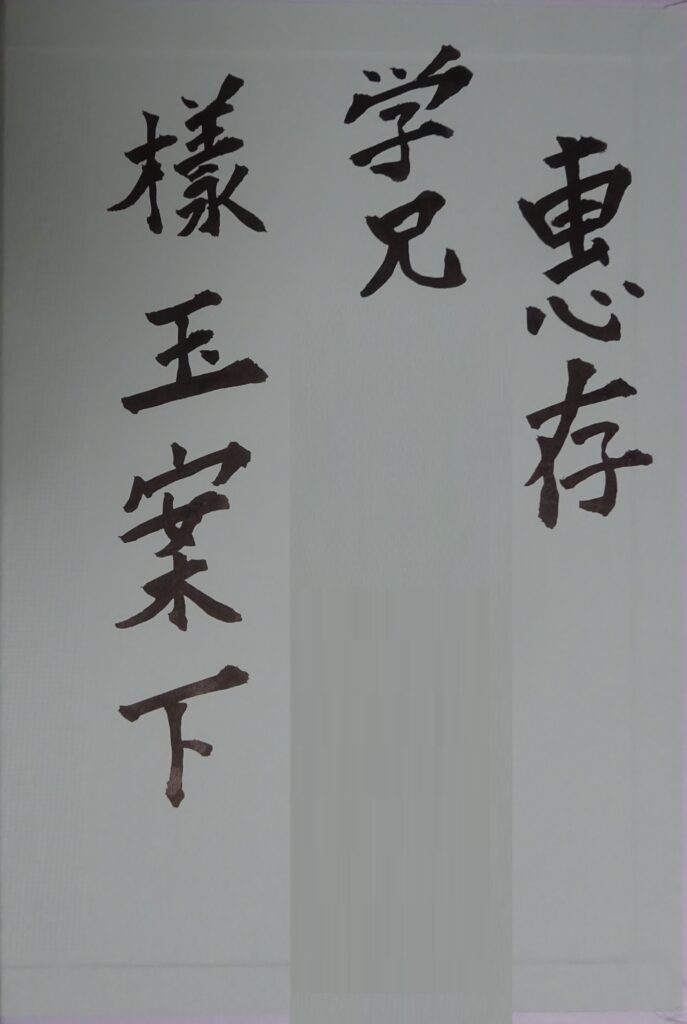 惠存
学兄
樣玉案下